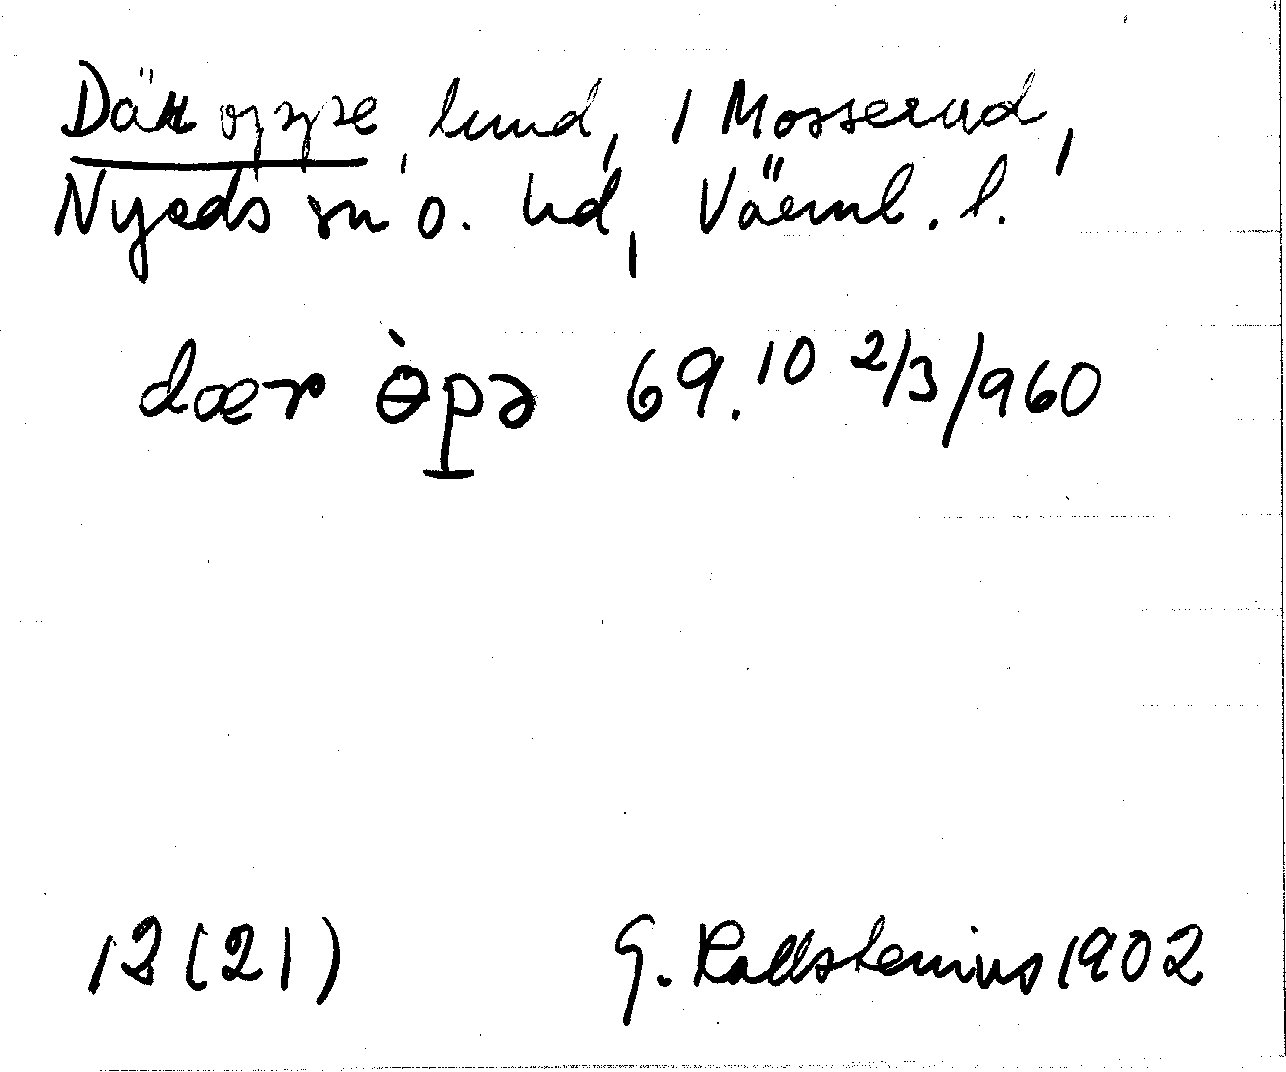 Där oppe, lund, 1 Mosserud,
Nyeds sn o. hd, Värml. l.
dær ὲpə 69.10 2/3/960
12(21) G. Kallstenius 1902